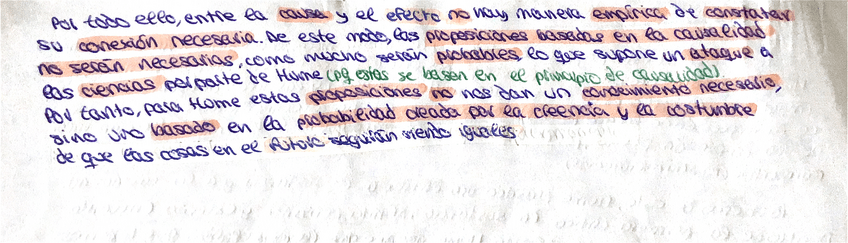 Por todo ello, entre la causa y el efecto no hay manera empírica de constatar
su conexión necesaria. De este modo, las proposiciones basadas en la causalidad
no serán necesarias, como mucho serán probables, lo que supone un ataque a
las ciencias por parte de Hume (pq estas se basan en el principio de causalidad).
Por tanto, para Hume estas proposiciones no nos dan un conocimiento necesario,
sino uno basado en la probabilidad creada por la creencia y la costumbre
de que las cosas en el futuro seguirán siendo iguales